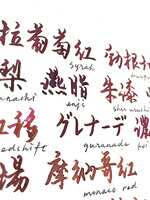 拉葡萄紅
syrah
勃根
梨
燕脂
朱漆
enji
紅移
グレナーデ
濃
redshift
guranade
場
摩納哥紅
monaco red